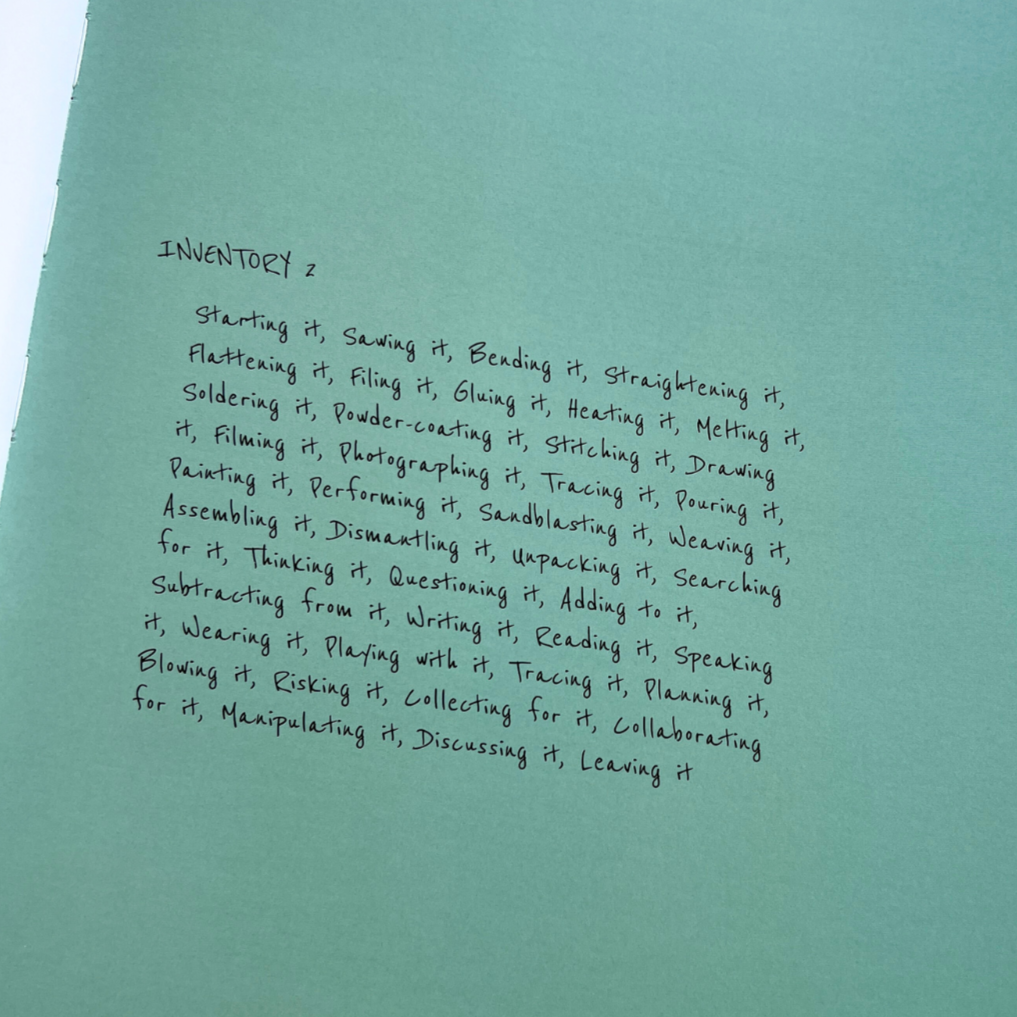 INVENTORY 2
Starting it, Sawing it, Bending it, Straightening it,
Flattening it, Filing it, Gluing it, Heating it, Melting it,
Soldering it, Powder-coating it, Stitching it, Drawing
it, Filming it, Photographing it, Tracing it, Pouring it,
Painting it, Performing it, Sandblasting it, Weaving it,
Assembling it, Dismantling it, Unpacking it, Searching
for it, Thinking it, Questioning it, Adding to it,
Subtracting from it, Writing it, Reading it, Speaking
it, Wearing it, Playing with it, Tracing it, Planning it,
Blowing it, Risking it, Collecting for it, Collaborating
for it, Manipulating it, Discussing it, Leaving it